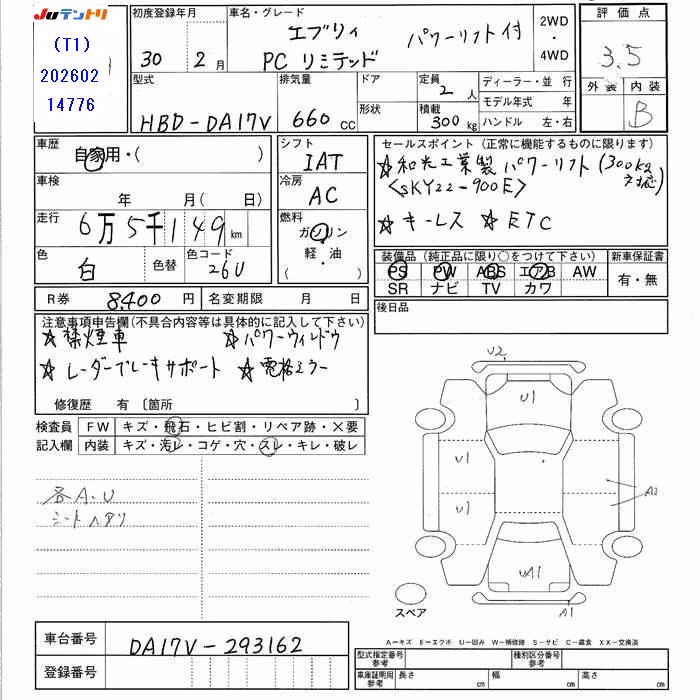 JUテントリ
(T1)
202602
14776
初度登録年月
30年 2月
車名・グレード
エブリィ パワーリフト付
PC リミテッド
2WD
・
4WD
評価点
3.5
外装 内装
B
型式
HBD-DA17V
排気量
660 cc
ドア
形状
定員
2人
積載
300kg
ディーラー・並行
モデル年式 年
ハンドル 左・右
車歴
自家用・( )
車検
年 月(日)
走行
6万5千149km
色
白
色替
色コード
26U
シフト
IAT
冷房
AC
燃料
ガソリン
軽・油
( ・ )
セールスポイント (正常に機能するものに限ります)
☆和光工業製パワーリフト(300kg対応)
<SKY22-900E>
☆キーレス ☆ETC
装備品(純正品に限り○をつけて下さい)
PS PW ABS エアB AW
SR ナビ TV カワ
新車保証書
有・無
R券 8,400円
名変期限 月 日
後日品
注意事項申告欄(不具合内容等は具体的に記入して下さい)
☆禁煙車 ☆パワーウィンドウ
☆レーダーブレーキサポート ☆電格ミラー
修復歴 有 〔箇所 〕
検査員
記入欄
FW キズ・飛石・ヒビ割・リペア跡・×要
内装 キズ・汚レ・コゲ・穴・スレ・キレ・破レ
各A.U
シートヘタリ
U2
U1
U1
U1
UA1
A1
スペア
A1
車台番号 DA17V-293162
登録番号
A-キズ E-エクボ U-凹み W-補修跡 S-サビ C-腐食 XX-交換済
型式指定番号
参考
種別区分番号
参考
車庫証明用
参考
長さ cm 幅 cm 高さ cm